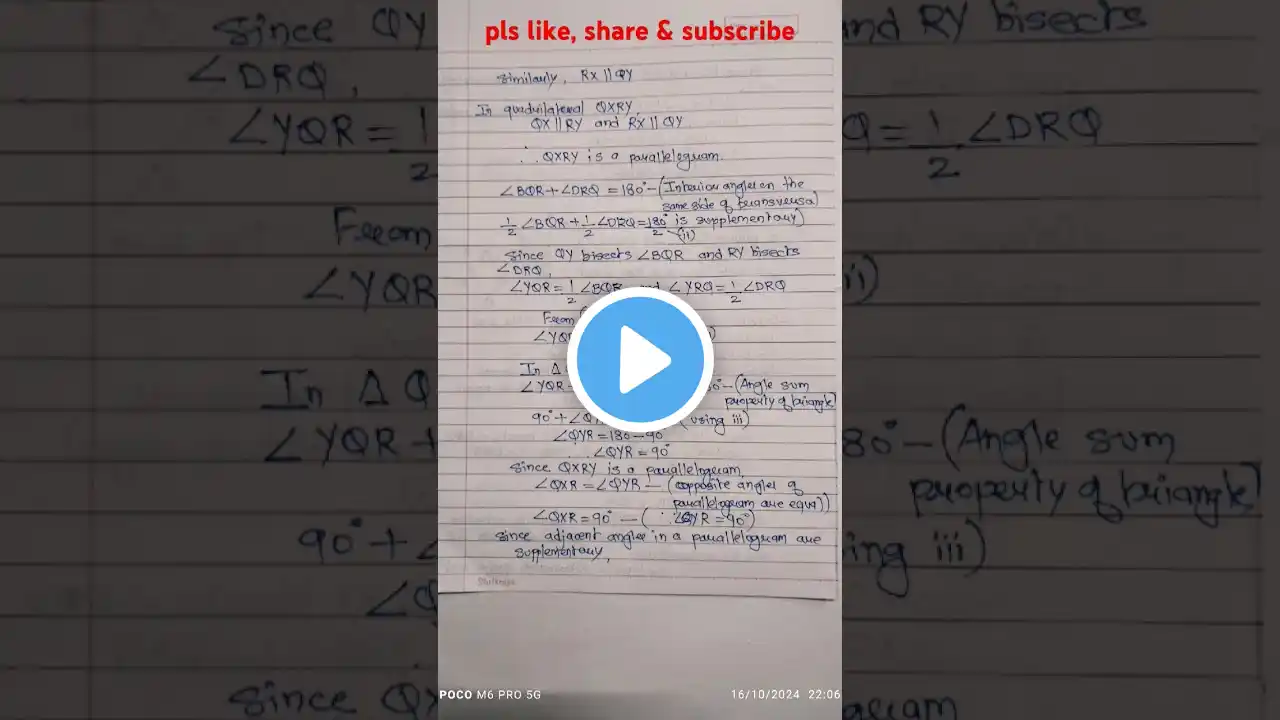 pls like, share & subscribe
Similarly, RX || QY
In quadrilateral QXRY,
QX || RY and RX || QY
∴ QXRY is a parallelogram.
∠BQR + ∠DRQ = 180° — (Interior angles on the
same side of transversal
1/2 ∠BQR + 1/2 ∠DRQ = 180°/2 is supplementary)
(ii)
Since QY bisects ∠BQR and RY bisects
∠DRQ,
∠YQR = 1/2 ∠BQR and ∠YRQ = 1/2 ∠DRQ
From
∠YQR
In Δ Q
∠YQR 80° — (Angle sum
property of triangle)
90° + ∠Q (using iii)
∠QYR = 180 - 90
∴ ∠QYR = 90°
Since QXRY is a parallelogram,
∠QXR = ∠QYR — (opposite angles of
parallelogram are equal)
∠QXR = 90° — (∵ ∠QYR = 90°)
since adjacent angles in a parallelogram are
supplementary,
POCO M6 PRO 5G
16/10/2024 22:06
Since QY
∠DRQ,
∠YQR = 1/2
From
∠YQR
In Δ Q
∠YQR +
90° + ∠
∠Q
Since QX
and RY bisects
Q = 1/2 ∠DRQ
ii)
80° — (Angle sum
property of triangle)
ing iii)
gram